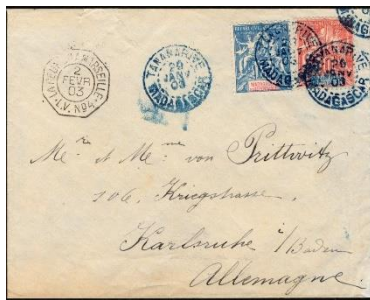 LA REUNION A MARSEILLE
2
FEVR
03
L.V. N°4
TANANARIVE
29
JANV
03
MADAGASCAR
TANANARIVE
29
JANV
03
MADAGASCAR
Mr et Mme von Prittwitz
106, Kriegstrasse,
Karlsruhe i/Baden
Allemagne.